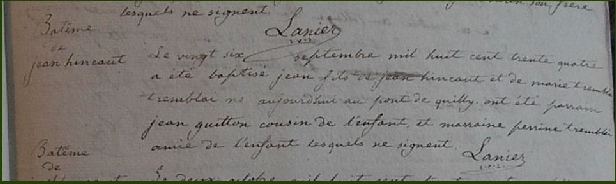 lesquels ne signent.
Lanier
Batême
de
jean hincaut
Le vingt six septembre mil huit cent trente quatre
a été baptisé jean fils de jean hincaut et de marie tremblar
tremblar né aujourdhui au pont de quilly, ont été parrain
jean guitton cousin de l'enfant, et marraine perrine tremblar
amie de l'enfant lesquels ne signent.
Lanier
Batême
de
Le deux octobre mil huit cent